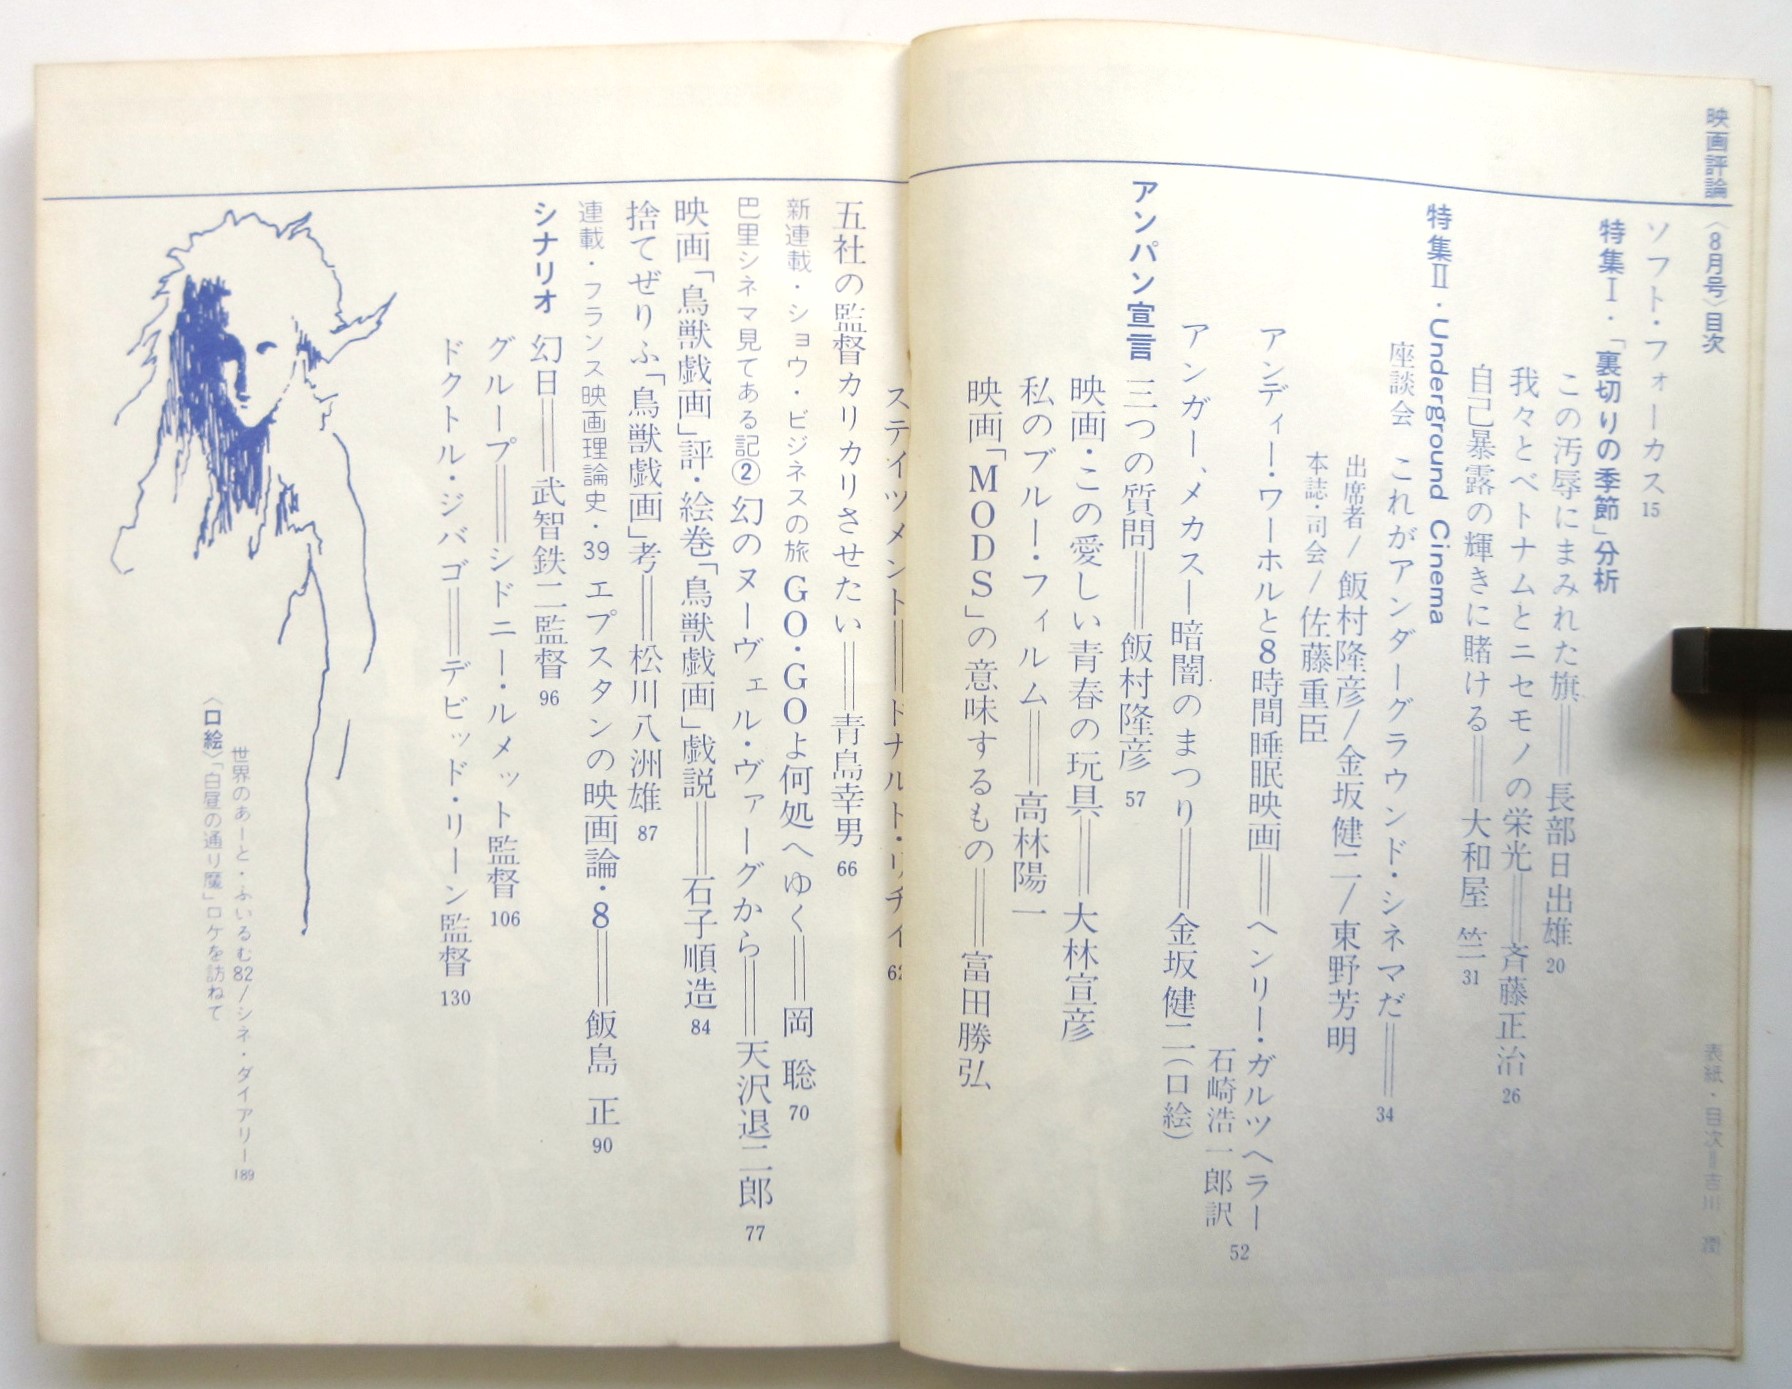 映画評論〈8月号〉目次
表紙・目次＝吉川
ソフト・フォーカス 15
特集Ⅰ・「裏切りの季節」分析
この汚辱にまみれた旗＝長部日出雄 20
我々とベトナムとニセモノの栄光＝斉藤正治 26
自己暴露の輝きに賭ける＝大和屋竺 31
特集Ⅱ・Underground Cinema
座談会 これがアンダーグラウンド・シネマだ＝34
出席者/飯村隆彦/金坂健二/東野芳明
本誌・司会/佐藤重臣
アンディー・ワーホルと8時間睡眠映画＝ヘンリー・ガルツヘラー
石崎浩一郎訳 52
アンガー、メカス―暗闇のまつり＝金坂健二(口絵)
アンパン宣言 三つの質問＝飯村隆彦 57
映画・この愛しい青春の玩具＝大林宣彦
私のブルー・フィルム＝高林陽一
映画「MODS」の意味するもの＝富田勝弘
ステイツメント＝ドナルト・リチイ 62
五社の監督カリカリさせたい＝青島幸男 66
新連載・ショウ・ビジネスの旅 GO・GOよ何処へゆく＝岡聡 70
巴里シネマ見てある記② 幻のヌーヴェル・ヴァーグから＝天沢退二郎 77
映画「鳥獣戯画」評・絵巻「鳥獣戯画」戯説＝石子順造 84
捨てぜりふ「鳥獣戯画」考＝松川八洲雄 87
連載・フランス映画理論史・39 エプスタンの映画論・8＝飯島正 90
シナリオ 幻日＝武智鉄二監督 96
グループ＝シドニー・ルメット監督 106
ドクトル・ジバゴ＝デビッド・リーン監督 130
世界のあーと・ふいるむ82/シネ・ダイアリー 189
〈口絵〉「白昼の通り魔」ロケを訪ねて